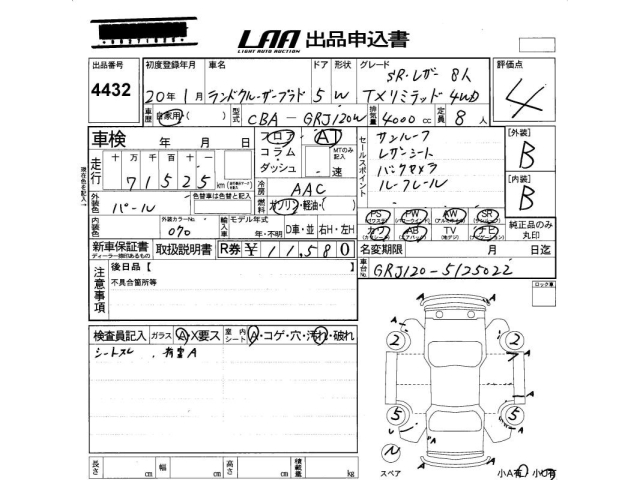 LAA 出品申込書
LIGHT AUTO AUCTION
出品番号 初度登録年月 車名 ドア 形状 グレード 評価点
4432 20年1月 ランドクルーザープラド 5 W SR・レザー 8人
TXリミテッド 4WD 4
車歴 自家用・( ) 型式 CBA-GRJ120W 排気量 4000 cc 定員 8 人
車検 年 月 日 フロア AT セールスポイント サンルーフ [外装]
コラム・ MTのみ記入 レザーシート B
走行 十 万 千 百 十 一 ダッシュ 速 バックカメラ
71525 km 冷房 AAC ルーフレール [内装]
B
外装色 パール 色替車は色替と記入 燃料 ガソリン・軽油・( )
PS PW KW SR
内装色 外装カラーNo. 070 輸入車 モデル年式 年・不明 D車・並 右H・左H
カワ AB TV ナビ 純正品のみ丸印
新車保証書 取扱説明書 R券 ¥ 11,580 名変期限 月 日迄
ディーラー捺印あるもの 車台No. GRJ120-5125022
注意事項 後日品【
不具合箇所等
ロック車
検査員記入 ガラス A・X要ス 室内シート A・コゲ・穴・汚れ・破れ
シートスレ
A A
2 2
A
5 5
A A
スペア
長さ cm 幅 cm 高さ cm 積載量 kg
小A有・小U有